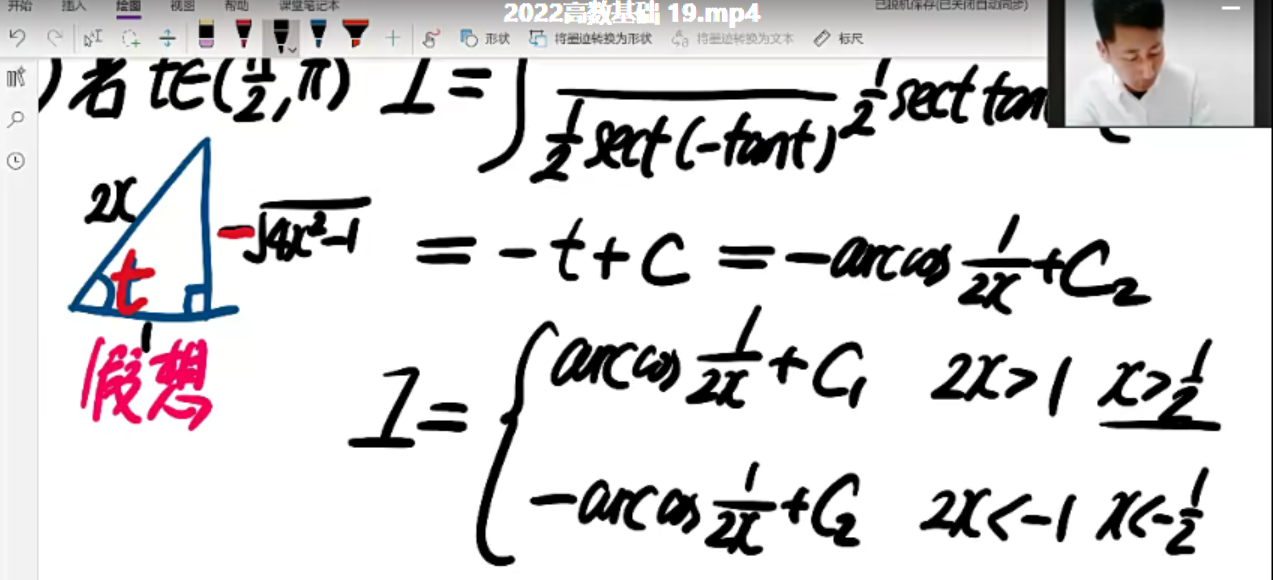 开始 插入 绘图 视图 帮助 课堂笔记本
2022高数基础 19.mp4
已脱机保存(已关闭自动同步)
形状 将墨迹转换为形状 将墨迹转换为文本 标尺
) 若 t∈(π/2, π) I = ∫ 1/2 sect tant
1/2 sect (-tant)
2x
-√4x²-1
t
1
假想
= -t + C = -arccos 1/2x + C₂
I = { arccos 1/2x + C₁ 2x > 1 x > 1/2
-arccos 1/2x + C₂ 2x < -1 x < -1/2